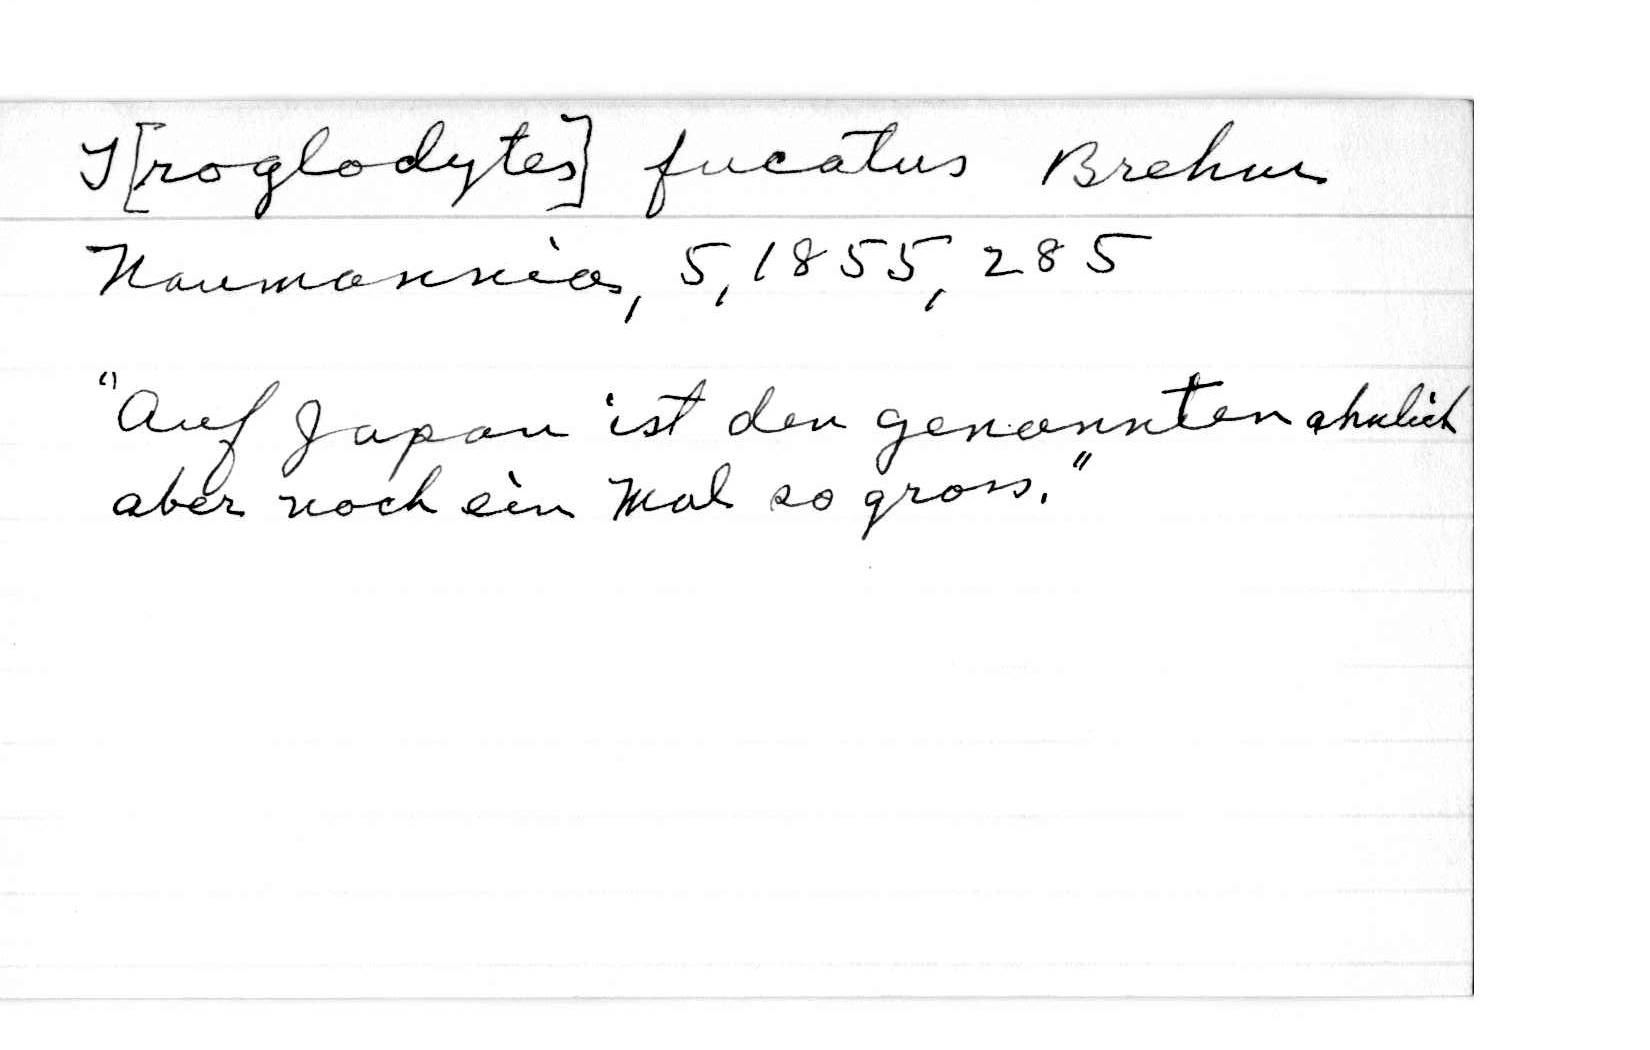 T[roglodytes] fucatus Brehm
Naumannia, 5, 1855, 285
"Auf Japan ist den genannten ahnlich
aber noch ein Mal so gross."